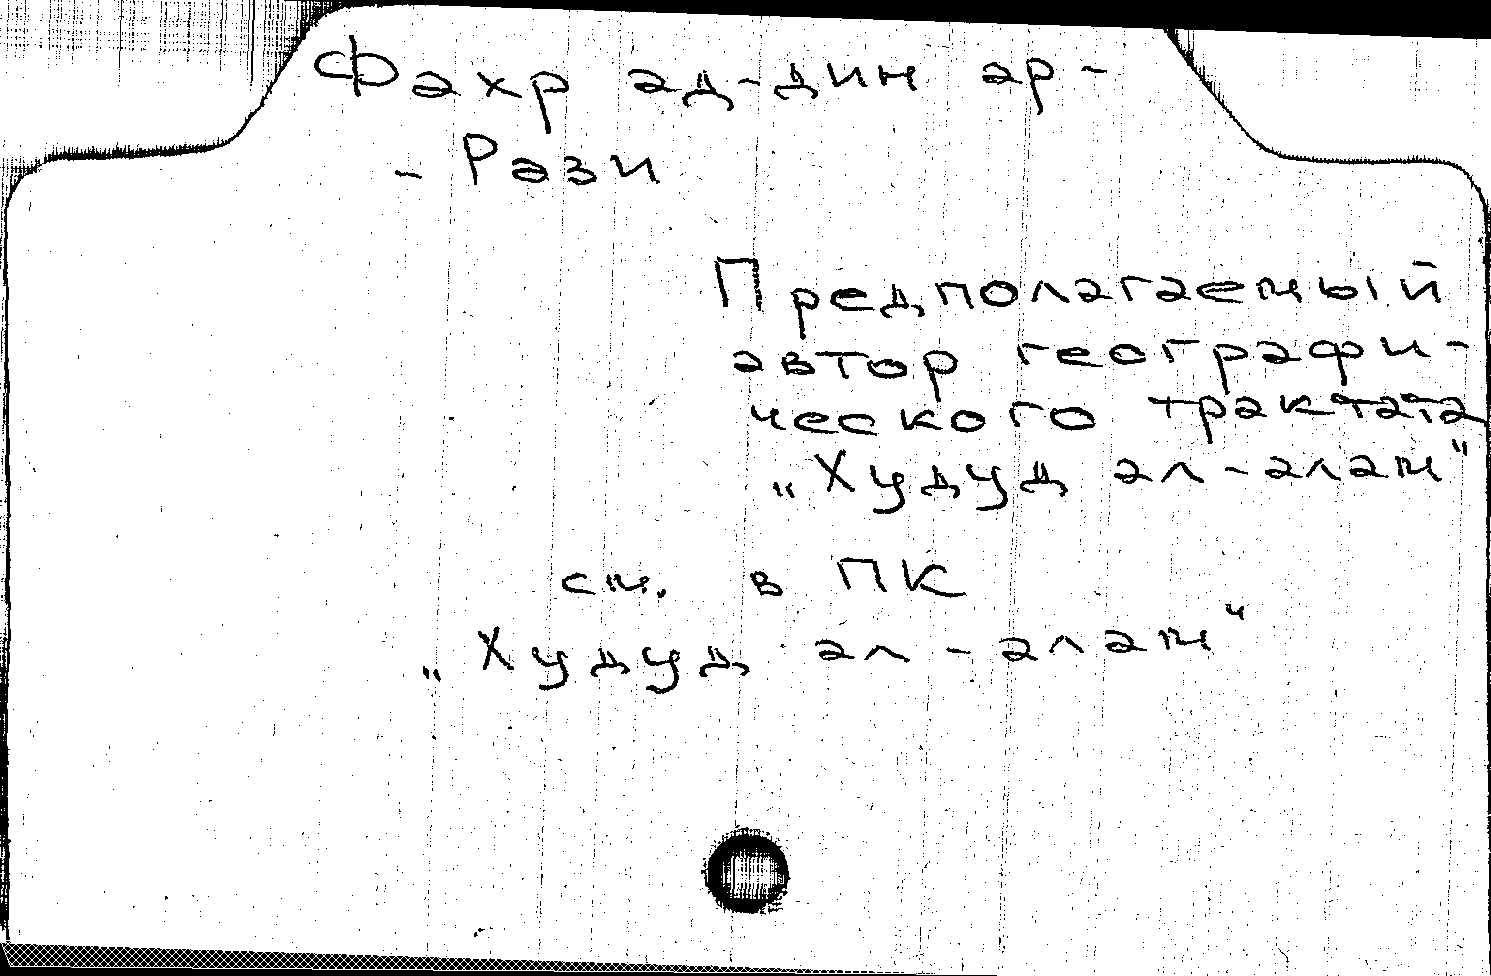 Фахр ад-дин ар-
- Рази
Предполагаемый
автор географи-
ческого трактата
„Худуд ал-алам"
см. в ПК
„Худуд ал-алам"